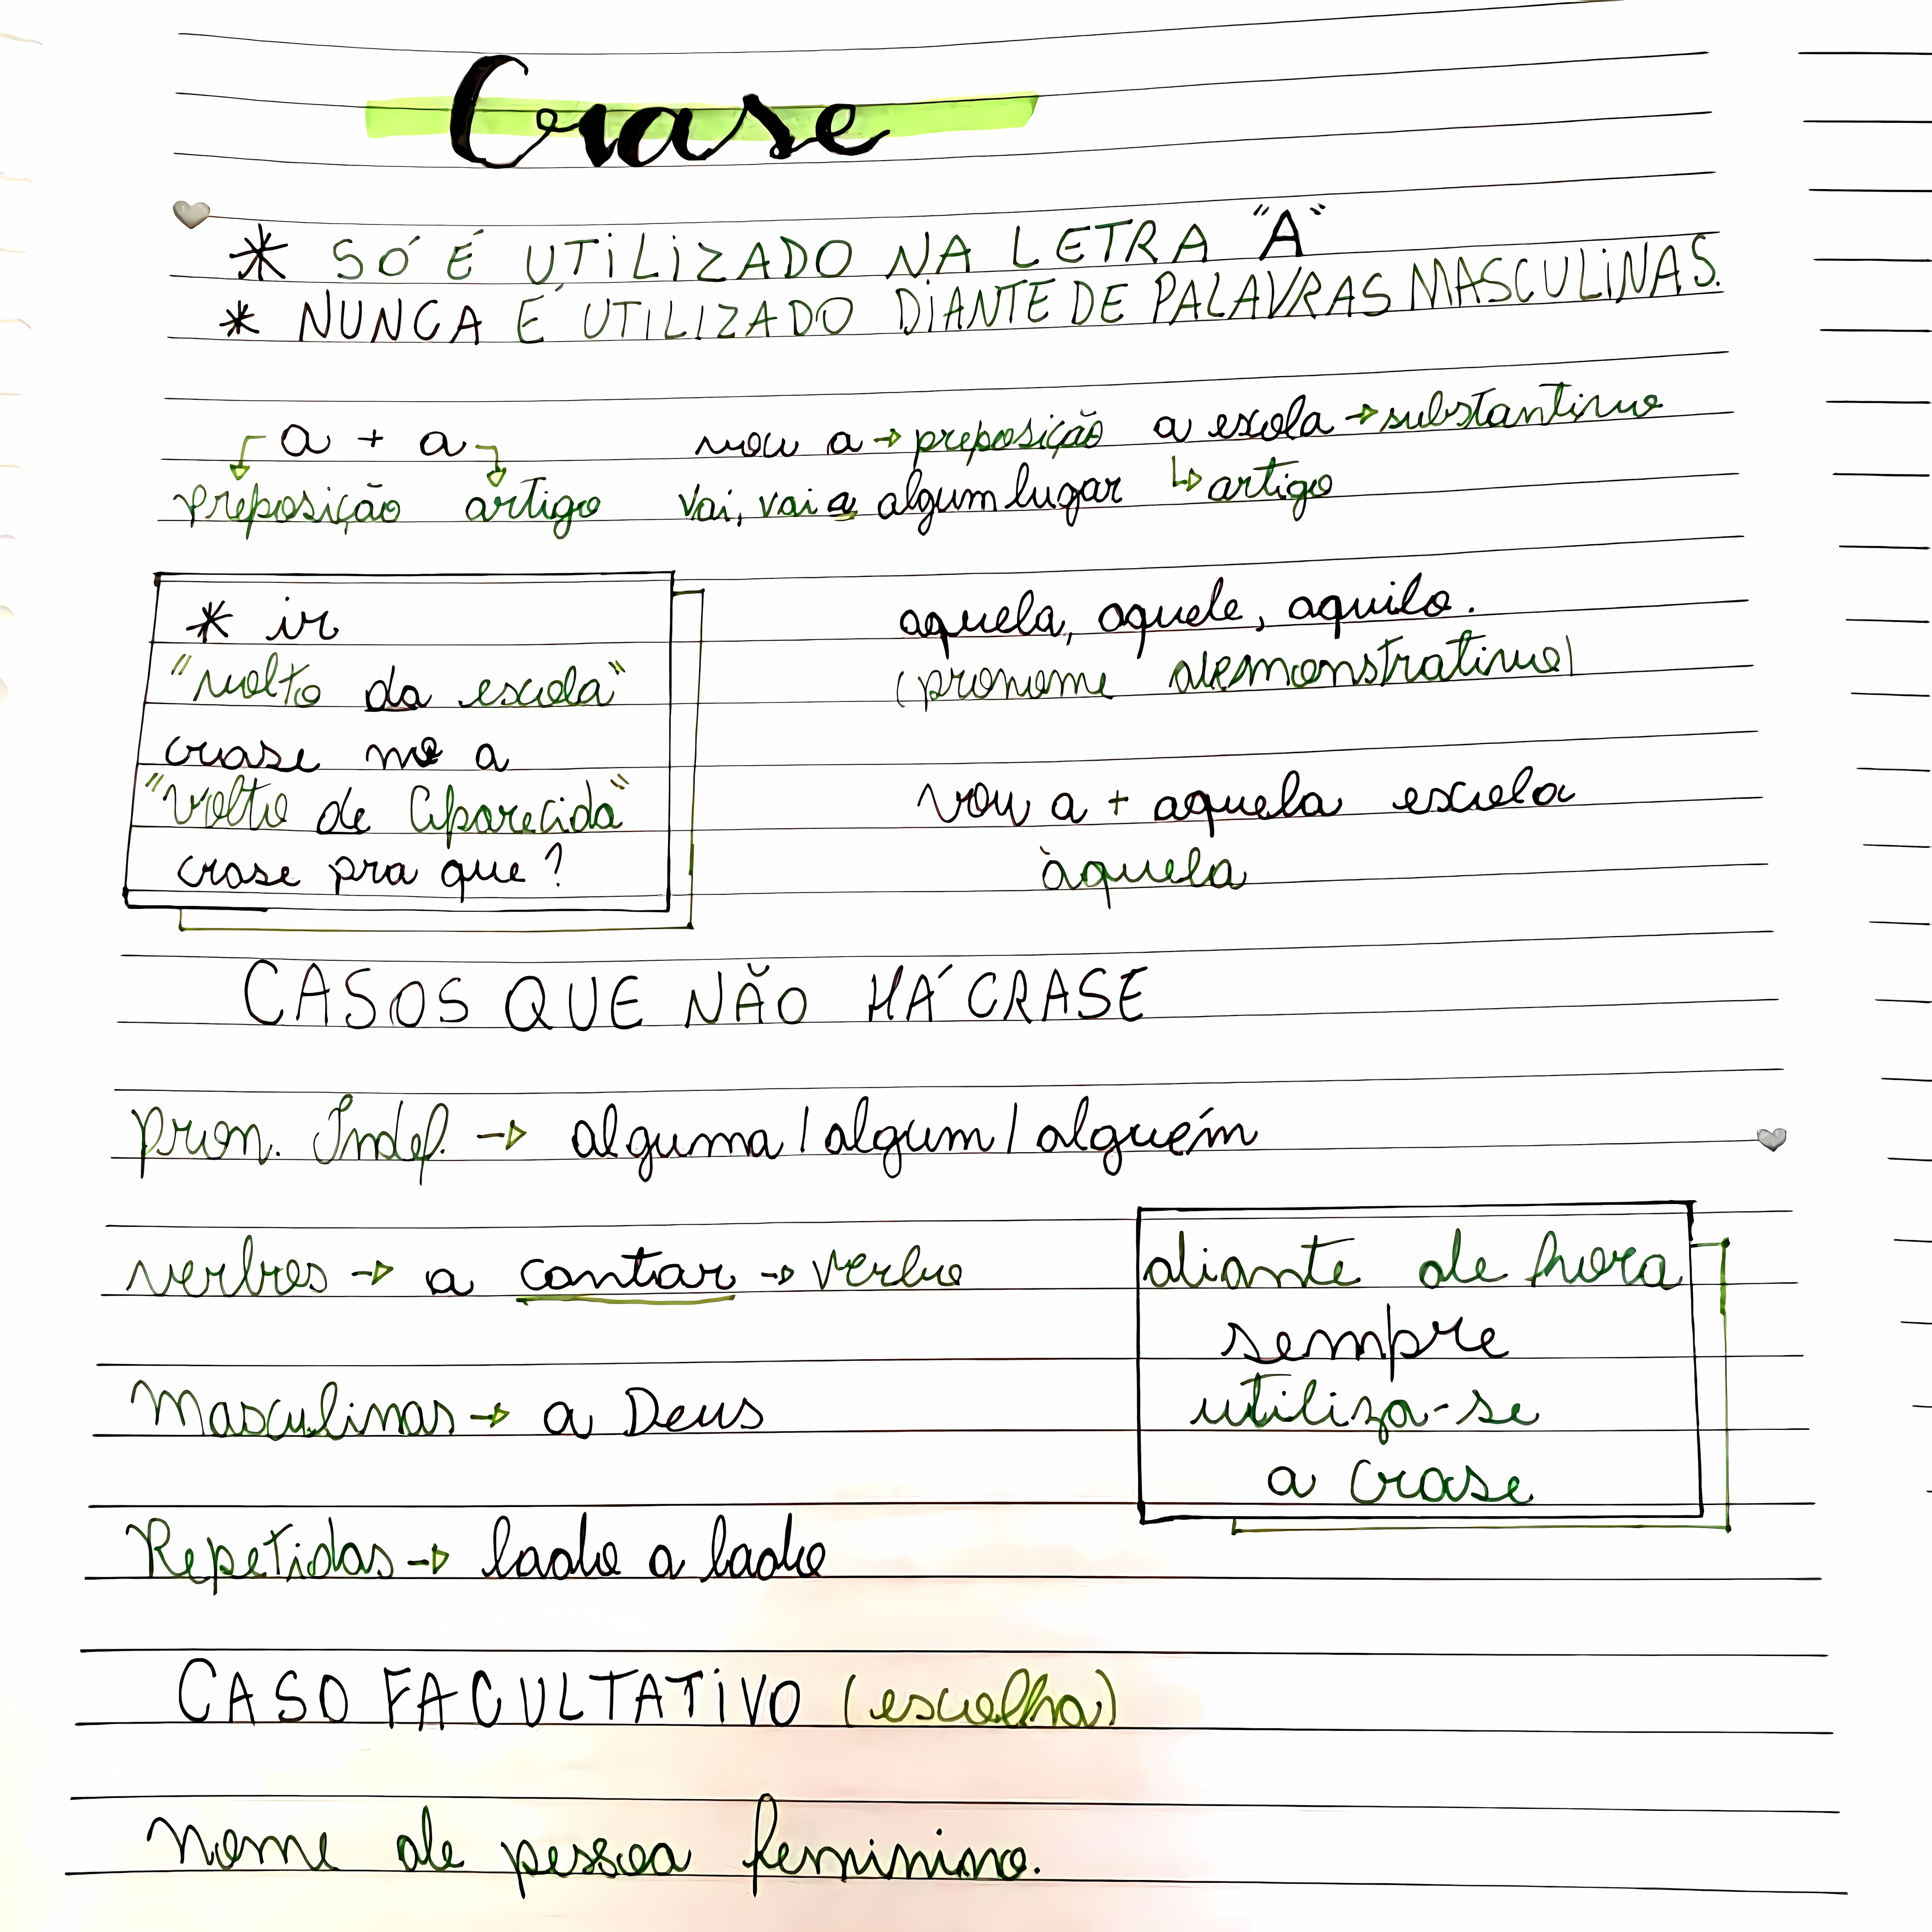 Crase
* SÓ É UTILIZADO NA LETRA "A"
* NUNCA É UTILIZADO DIANTE DE PALAVRAS MASCULINAS.
a + a
preposição artigo
vou a → preposição a escola → substantivo
vai, vai a algum lugar ↳ artigo
* ir
"volto da escola"
crase no a
"volto de Aparecida"
crase pra que?
aquela, aquele, aquilo.
(pronome demonstrativo)
vou a + aquela escola
àquela
CASOS QUE NÃO HÁ CRASE
pron. Indef. → alguma / algum / alguém
verbos → a contar → verbo
Masculinas → a Deus
Repetidas → lado a lado
diante de hora
sempre
utiliza-se
a crase
CASO FACULTATIVO (escolha)
nome de pessoa feminino.